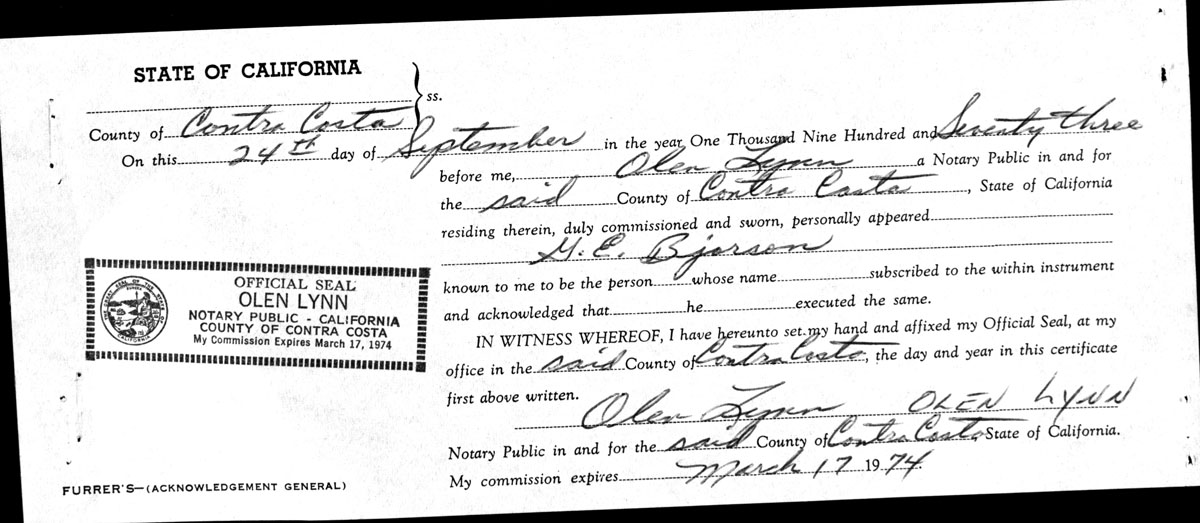 STATE OF CALIFORNIA
ss.
County of Contra Costa
On this 24th day of September in the year One Thousand Nine Hundred and Seventy three
before me, Olen Lynn a Notary Public in and for
the said County of Contra Costa, State of California
residing therein, duly commissioned and sworn, personally appeared
G. E. Bjorson
known to me to be the person whose name subscribed to the within instrument
and acknowledged that he executed the same.
IN WITNESS WHEREOF, I have hereunto set my hand and affixed my Official Seal, at my
office in the said County of Contra Costa, the day and year in this certificate
first above written.
Olen Lynn OLEN LYNN
Notary Public in and for the said County of Contra Costa, State of California.
My commission expires March 17 1974.
OFFICIAL SEAL
OLEN LYNN
NOTARY PUBLIC - CALIFORNIA
COUNTY OF CONTRA COSTA
My Commission Expires March 17, 1974
FURRER'S—(ACKNOWLEDGEMENT GENERAL)